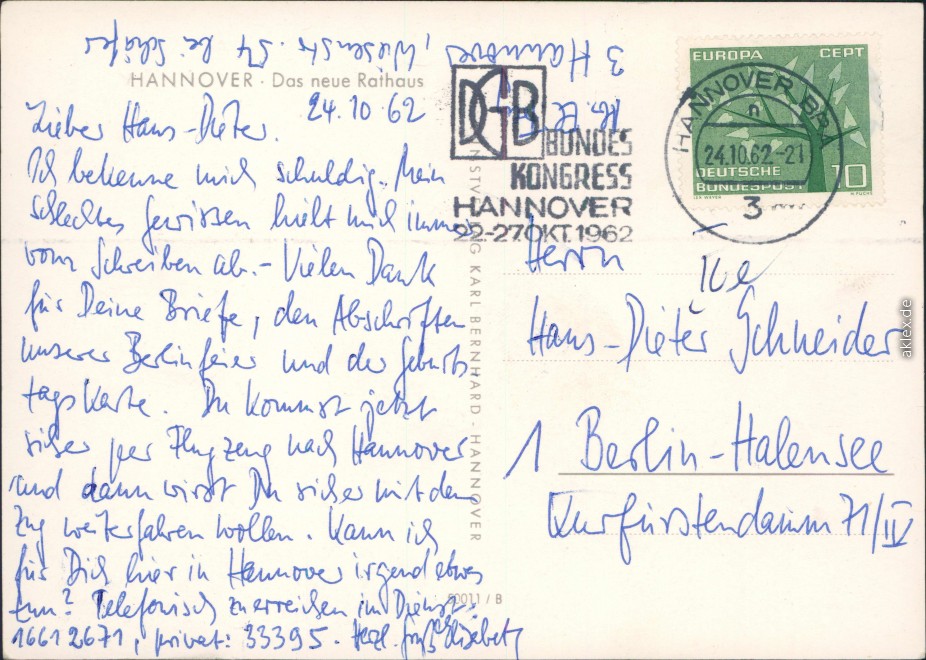 3 Hannover, Wiesenstr. 54 bei Schäfer
HANNOVER · Das neue Rathaus
24.10 62
Lieber Hans-Dieter.
Ich bekenne mich schuldig. Mein
schlechtes Gewissen hielt mich immer
vom Schreiben ab. - Vielen Dank
für Deine Briefe, den Abschriften
unserer Berlinfeier und der Geburts
tagskarte. Du kommst jetzt
sicher per Flugzeug nach Hannover
und dann wirst Du sicher mit dem
Zug weiterfahren wollen. Kann ich
für Dich hier in Hannover irgend etwas
tun? Telefonisch zu erreichen im Dienst:
16612671, privat: 33395. Herzl. Gruß Elisabeth
KARL BERNHARD - HANNOVER
50011 / B
DGB
BUNDES
KONGRESS
HANNOVER
22-27.OKT.1962
HANNOVER BPA
n
24.10.62-21
3
EUROPA CEPT
DEUTSCHE
BUNDESPOST
10
Herrn
Hans-Dieter Schneider
1 Berlin-Halensee
Kurfürstendamm 71/IV
aklex.de